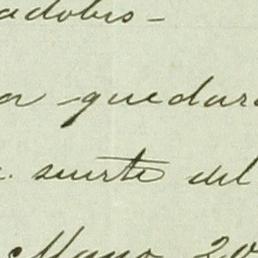 adobes -
quedara
suerte del
Mayo 20